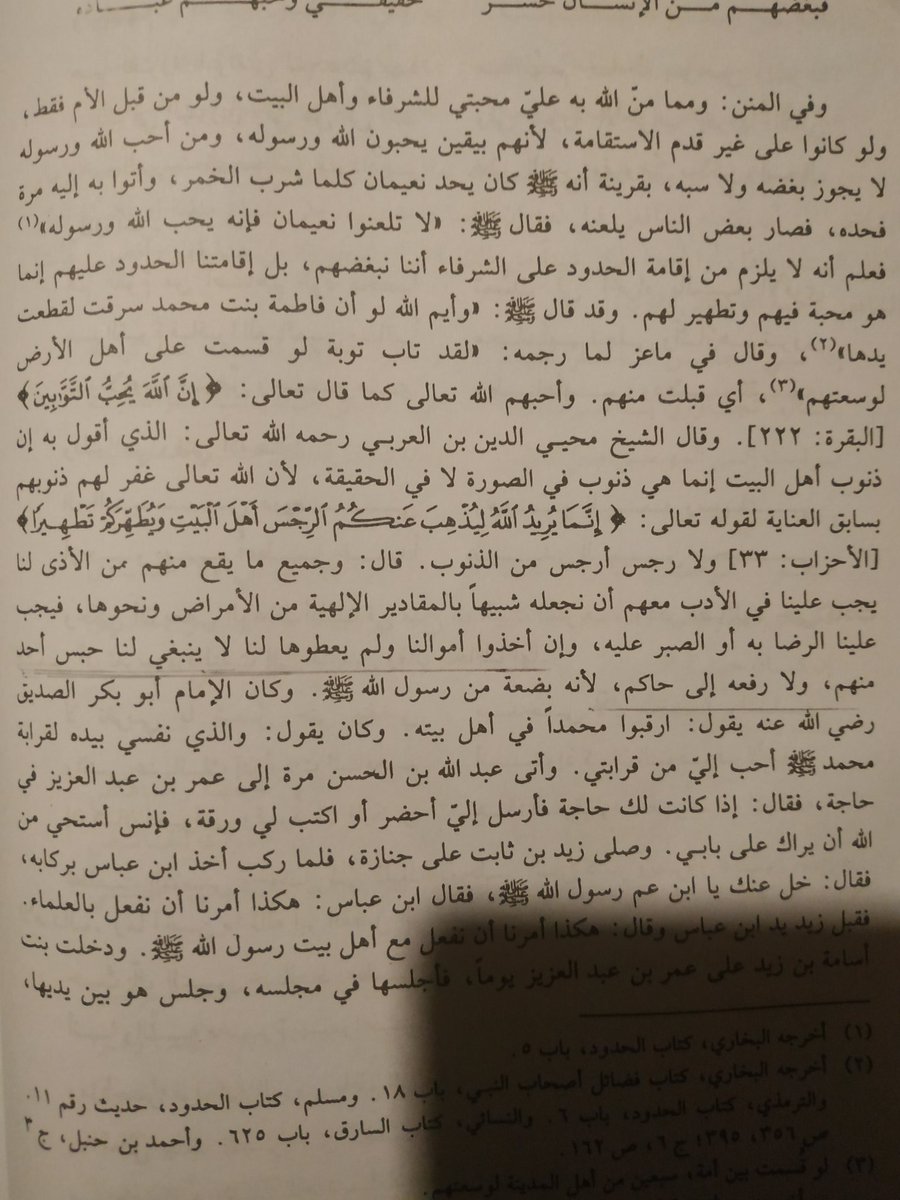 فبعضهم مـن الإنسان خسر
وفي المنن: ومما منّ الله به عليّ محبتي للشرفاء وأهل البيت، ولو من قبل الأم فقط،
ولو كانوا على غير قدم الاستقامة، لأنهم بيقين يحبون الله ورسوله، ومن أحب الله ورسوله
لا يجوز بغضه ولا سبه، بقرينة أنه ﷺ كان يحد نعيمان كلما شرب الخمر، وأتوا به إليه مرة
فحده، فصار بعض الناس يلعنه، فقال ﷺ: «لا تلعنوا نعيمان فإنه يحب الله ورسوله»(١)
فعلم أنه لا يلزم من إقامة الحدود على الشرفاء أننا نبغضهم، بل إقامتنا الحدود عليهم إنما
هو محبة فيهم وتطهير لهم. وقد قال ﷺ: «وأيم الله لو أن فاطمة بنت محمد سرقت لقطعت
يدها»(٢)، وقال في ماعز لما رجمه: «لقد تاب توبة لو قسمت على أهل الأرض
لوسعتهم»(٣)، أي قبلت منهم. وأحبهم الله تعالى كما قال تعالى: ﴿إِنَّ ٱللَّهَ يُحِبُّ ٱلتَّوَّٰبِينَ﴾
[البقرة: ٢٢٢]. وقال الشيخ محيـي الدين بن العربـي رحمه الله تعالى: الذي أقول به إن
ذنوب أهل البيت إنما هي ذنوب في الصورة لا في الحقيقة، لأن الله تعالى غفر لهم ذنوبهم
بسابق العناية لقوله تعالى: ﴿إِنَّمَا يُرِيدُ ٱللَّهُ لِيُذْهِبَ عَنكُمُ ٱلرِّجْسَ أَهْلَ ٱلْبَيْتِ وَيُطَهِّرَكُمْ تَطْهِيرًا﴾
[الأحزاب: ٣٣] ولا رجس أرجس من الذنوب. قال: وجميع ما يقع منهم من الأذى لنا
يجب علينا في الأدب معهم أن نجعله شبيهاً بالمقادير الإلهية من الأمراض ونحوها، فيجب
علينا الرضا به أو الصبر عليه، وإن أخذوا أموالنا ولم يعطوها لنا لا ينبغي لنا حبس أحد
منهم، ولا رفعه إلى حاكم، لأنه بضعة من رسول الله ﷺ. وكان الإمام أبو بكر الصديق
رضي الله عنه يقول: ارقبوا محمداً في أهل بيته. وكان يقول: والذي نفسي بيده لقرابة
محمد ﷺ أحب إليّ من قرابتي. وأتى عبد الله بن الحسن مرة إلى عمر بن عبد العزيز في
حاجة، فقال: إذا كانت لك حاجة فأرسل إليّ أحضر أو اكتب لي ورقة، فإنس أستحي من
الله أن يراك على بابي. وصلى زيد بن ثابت على جنازة، فلما ركب أخذ ابن عباس بركابه،
فقال: خل عنك يا ابن عم رسول الله ﷺ، فقال ابن عباس: هكذا أمرنا أن نفعل بالعلماء.
فقبل زيد يد ابن عباس وقال: هكذا أمرنا أن نفعل مع أهل بيت رسول الله ﷺ. ودخلت بنت
أسامة بن زيد على عمر بن عبد العزيز يوماً، فأجلسها في مجلسه، وجلس هو بين يديها،
(١) أخرجه البخاري، كتاب الحدود، باب ٥.
(٢) أخرجه البخاري، كتاب فضائل أصحاب النبي، باب ١٨. ومسلم، كتاب الحدود، حديث رقم ١١.
والترمذي، كتاب الحدود، باب ٦. والنسائي، كتاب السارق، باب ٦٢٥. وأحمد بن حنبل، ج ٣
ص ٣٥٦، ٣٩٥؛ ج ٦، ص ١٦٢.
(٣) لو قسمت بين أمة، سبعين من أهل المدينة لوسعتهم.